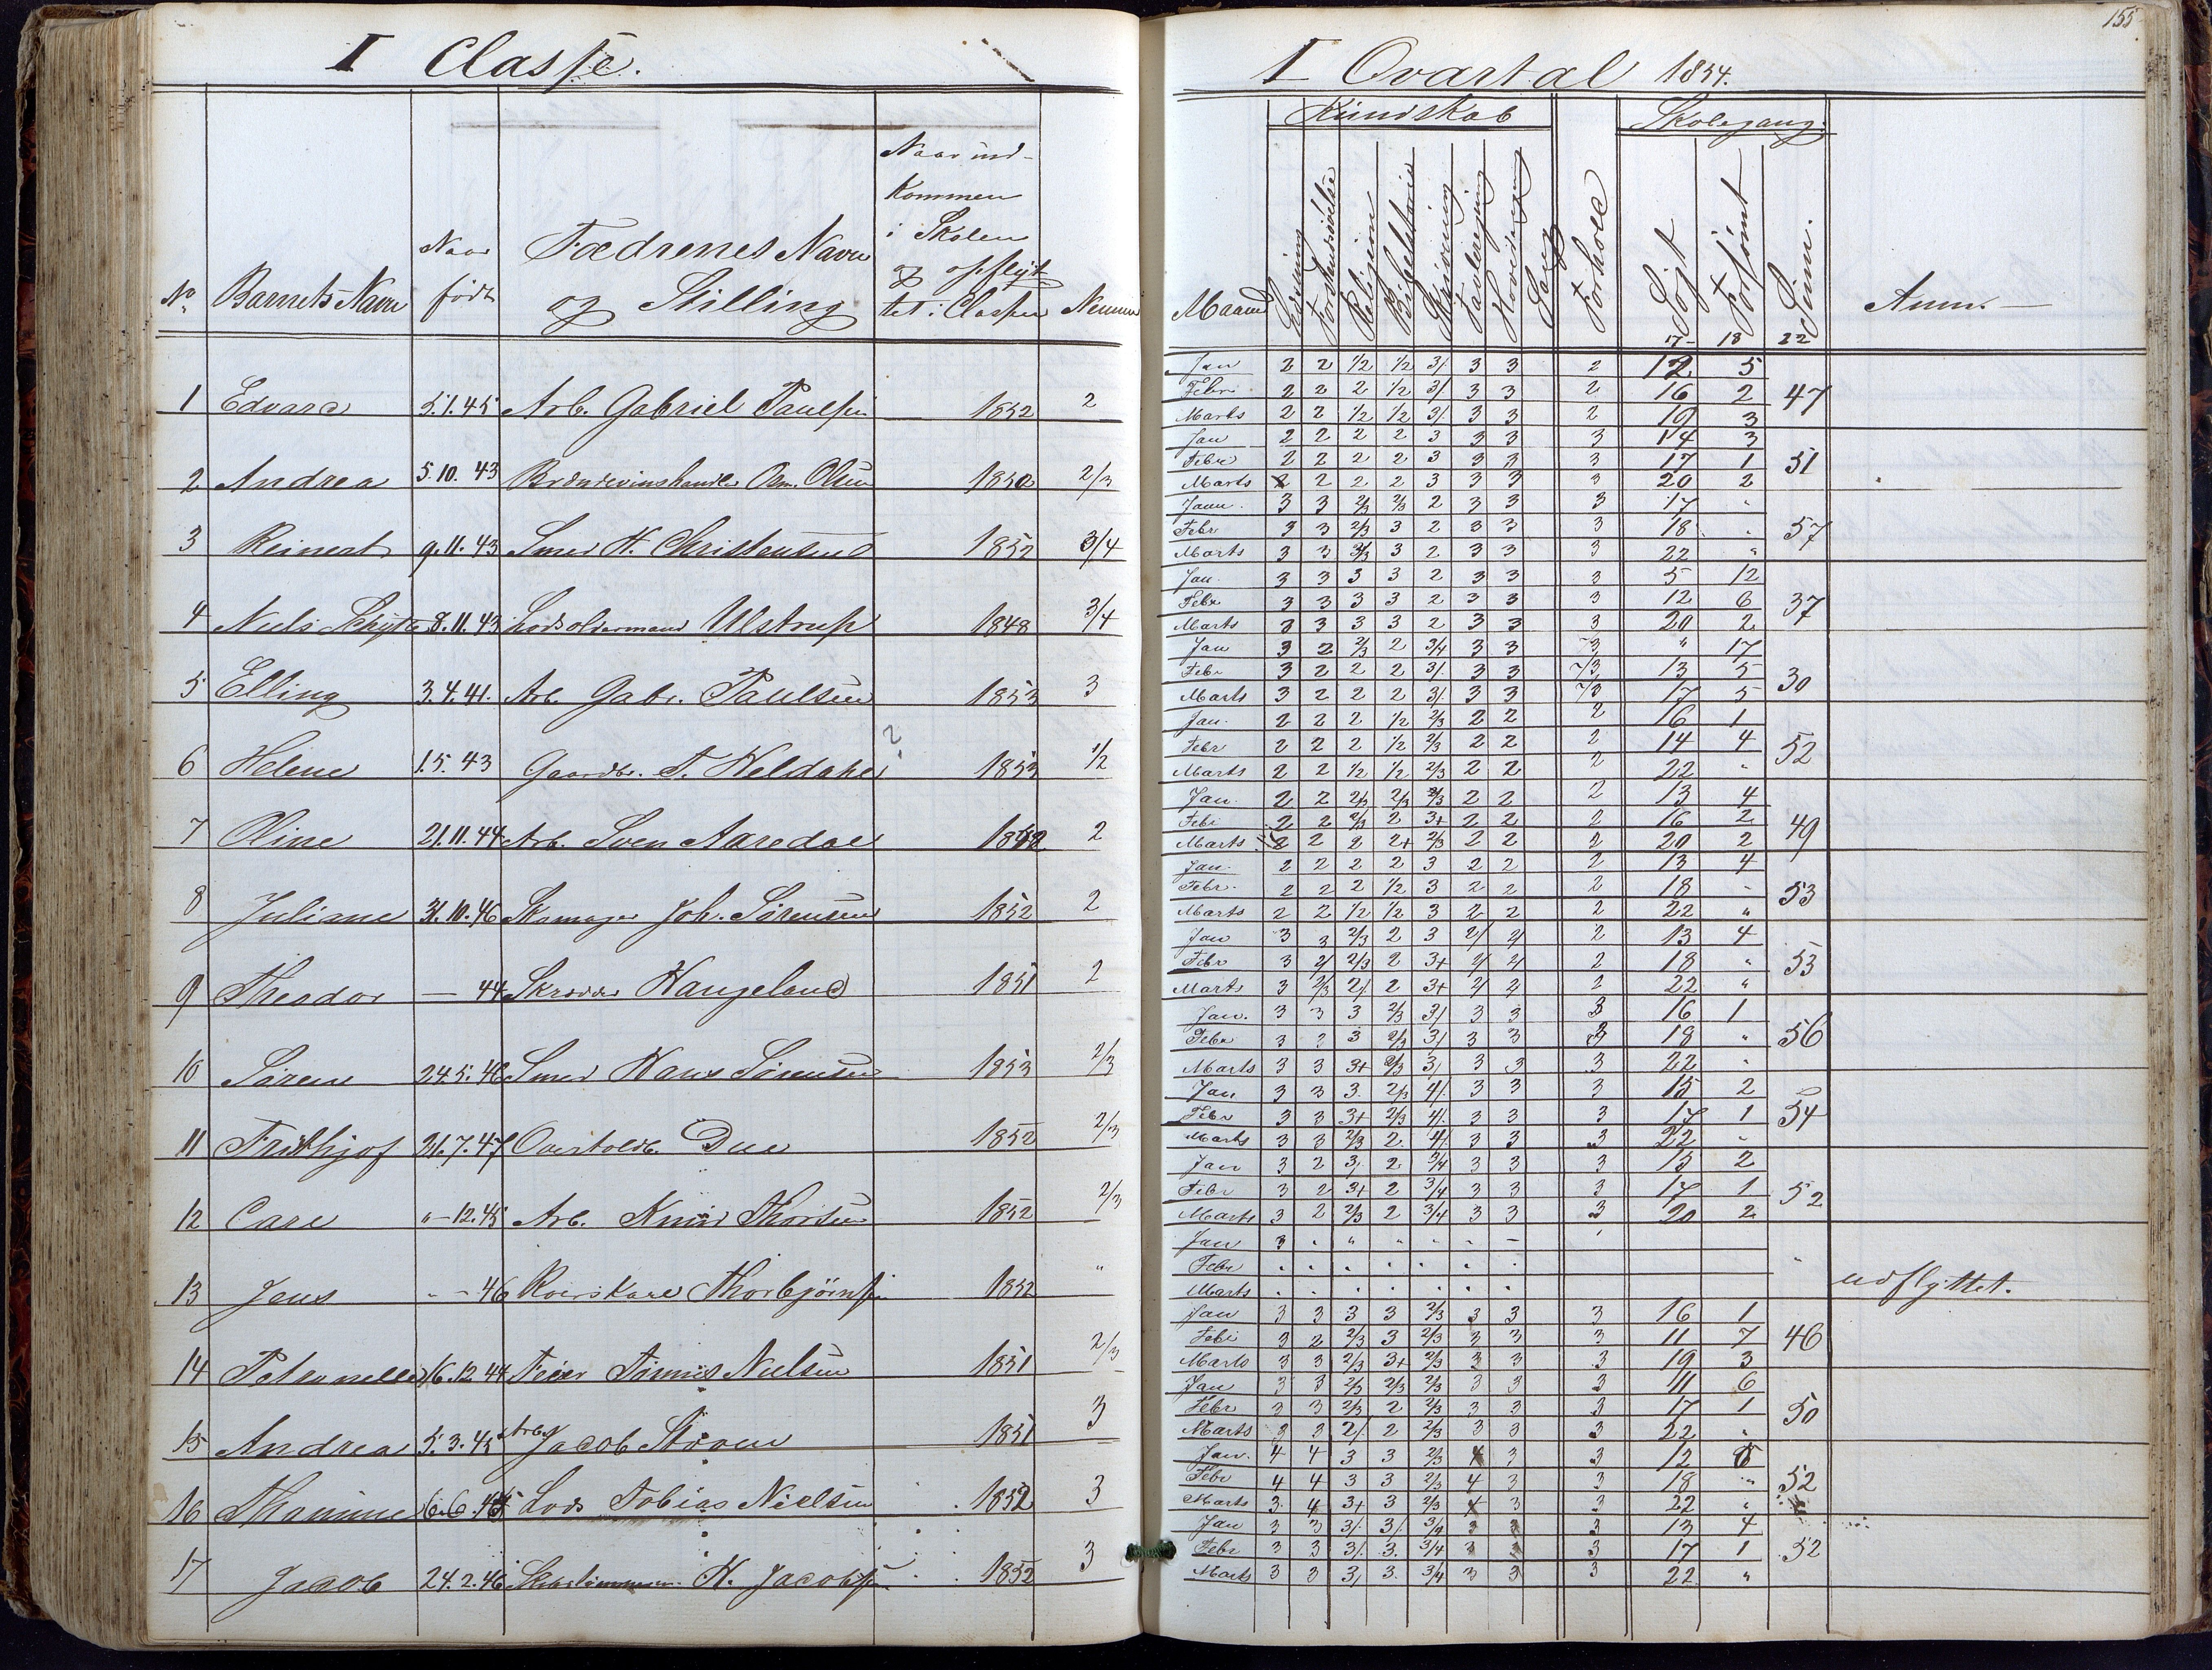 I Classe.
No Barnets Navn Naar født Fædrenes Navn og Stilling Naar ind-kommen i Skolen og opflyt-tet i Classen Nemme
1 Edvard 5.1.45 Arb. Gabriel Paulsen 1852 2
2 Andrea 5.10.43 Brændevinshandler Olsen 1850 2/3
3 Reinert 9.11.43 Smed H. Christensen 1852 3/4
4 Niels 8.11.43 Lodsoldermand Ulstrup 1848 3/4
5 Elling 3.4.41. Arb. Gabr. Paulsen 1853 3
6 Helene 1.5.43 Gaardbr. T. Heldahl ? 1853 1/2
7 Oline 21.11.44 Arb. Sven Aaredal 1848 2
8 Juliane 31.10.46 Skomager Joh. Sørensen 1852 2
9 Theodor — 44 Skræder Haugeland 1851 2
10 Søren 24.5.46 Smed Hans Sørensen 1853 2/3
11 Frithjof 31.7.47 Overtoldb. Due 1852 2/3
12 Carl "-12.45 Arb. Knud Thorsen 1852 2/3
13 Jens " - 46 Roerskarl Thorbjørnsen 1852 "
14 Petronelle 16.12.44 Feier Tønnes Nielsen 1851 2/3
15 Andrea 5.3.45 Arb. Jacob Steen 1851 3
16 Thamine 6.6.45 Lods Tobias Nielsen 1852 3
17 Jacob 24.2.46 Skibstømmerm. H. Jacobsen 1852 3
155.
I Qvartal 1854.
Kundskab Skolegang.
Maaned Læsning Forstandsøvelse Religion Bibelhistorie Skrivning Tavleregning Hovedregning Sang Forhold Søgt Forsømt Sum. Anm.
17 18 22
Jan 2 2 1/2 1/2 3/. 3 3 2 12 5
Febr 2 2 2 1/2 3/. 3 3 2 16 2 47
Marts 2 2 1/2 1/2 3/. 3 3 2 19 3
Jan 2 2 2 2 3 3 3 3 14 3
Febr 2 2 2 2 3 3 3 3 17 1 51
Marts 2 2 2 2 3 3 3 3 20 2
Janu. 3 3 2/3 2/3 2 3 3 3 17 "
Febr 3 3 2/3 3 2 3 3 3 18 " 57
Marts 3 3 2/3 3 2 3 3 3 22 "
Jan. 3 3 3 3 2 3 3 3 5 12
Febr 3 3 3 3 2 3 3 3 12 6 37
Marts 3 3 3 3 2 3 3 3 20 2
Jan 3 2 2/3 2 3/4 3 3 /3 " 17
Febr 3 2 2 2 3/. 3 3 /3 13 5 30
Marts 3 2 2 2 3/. 3 3 /3 17 5
Jan. 2 2 2 1/2 2/3 2 2 2 16 1
Febr 2 2 2 1/2 2/3 2 2 2 14 4 52
Marts 2 2 1/2 1/2 2/3 2 2 2 22 "
Jan. 2 2 2/3 2/3 2/3 2 2 2 13 4
Febr. 2 2 2/3 2 3+ 2 2 2 16 2 49
Marts 2 2 2 2+ 2/3 2 2 2 20 2
Jan. 2 2 2 2 3 2 2 2 13 4
Febr. 2 2 2 1/2 3 2 2 2 18 - 53
Marts 2 2 1/2 1/2 3 2 2 2 22 "
Jan 3 3 2/3 2 3 2/ 2/ 2 13 4
Febr 3 2/ 2/3 2 3+ 2/ 2/ 2 18 " 53
Marts 3 2/3 2/. 2 3+ 2/ 2/ 2 22 "
Jan. 3 3 3 2/3 3/ 3 3 3 16 1
Febr 3 3 3 2/3 3/ 3 3 3 18 " 56
Marts 3 3 3+ 2/3 3/ 3 3 3 22 "
Jan 3 3 3. 2/3 4/. 3 3 3 15 2
Febr 3 3 3+ 2/3 4/. 3 3 3 17 1 54
Marts 3 3 2/3 2. 4/. 3 3 3 22 "
Jan 3 2 3/ 2 3/4 3 3 3 15 2
Febr 3 2 3+ 2 3/4 3 3 3 17 1 52
Marts 3 2 2/3 2 3/4 3 3 3 20 2
Jan 3 " " " " " -
Febr " " " " " " " "
Marts " " " " " " " udflyttet.
Jan 3 3 3 3 2/3 3 3 3 16 1
Febr 3 2 2/3 3 2/3 3 3 3 11 7 46
Marts 3 3 2/3 3+ 2/3 3 3 3 19 3
Jan 3 3 2/3 2/3 2/3 3 3 3 11 6
Febr 3 3 2/3 2 2/3 3 3 3 17 1 50
Marts 3 3 2/. 2 2/3 3 3 3 22 "
Jan. 4 4 3 3 2/3 4 3 3 12 5
Febr 4 4 3 3 2/3 4 3 3 18 " 52
Marts 3. 4 3+ 3 2/3 4 3 3 22 "
Jan 3 3 3/. 3/. 3/4 3 3 3 13 4
Febr 3 3 3/. 3. 3/4 3 3 3 17 1 52
Marts 3 3 3/ 3. 3/4 3 3 3 22 "